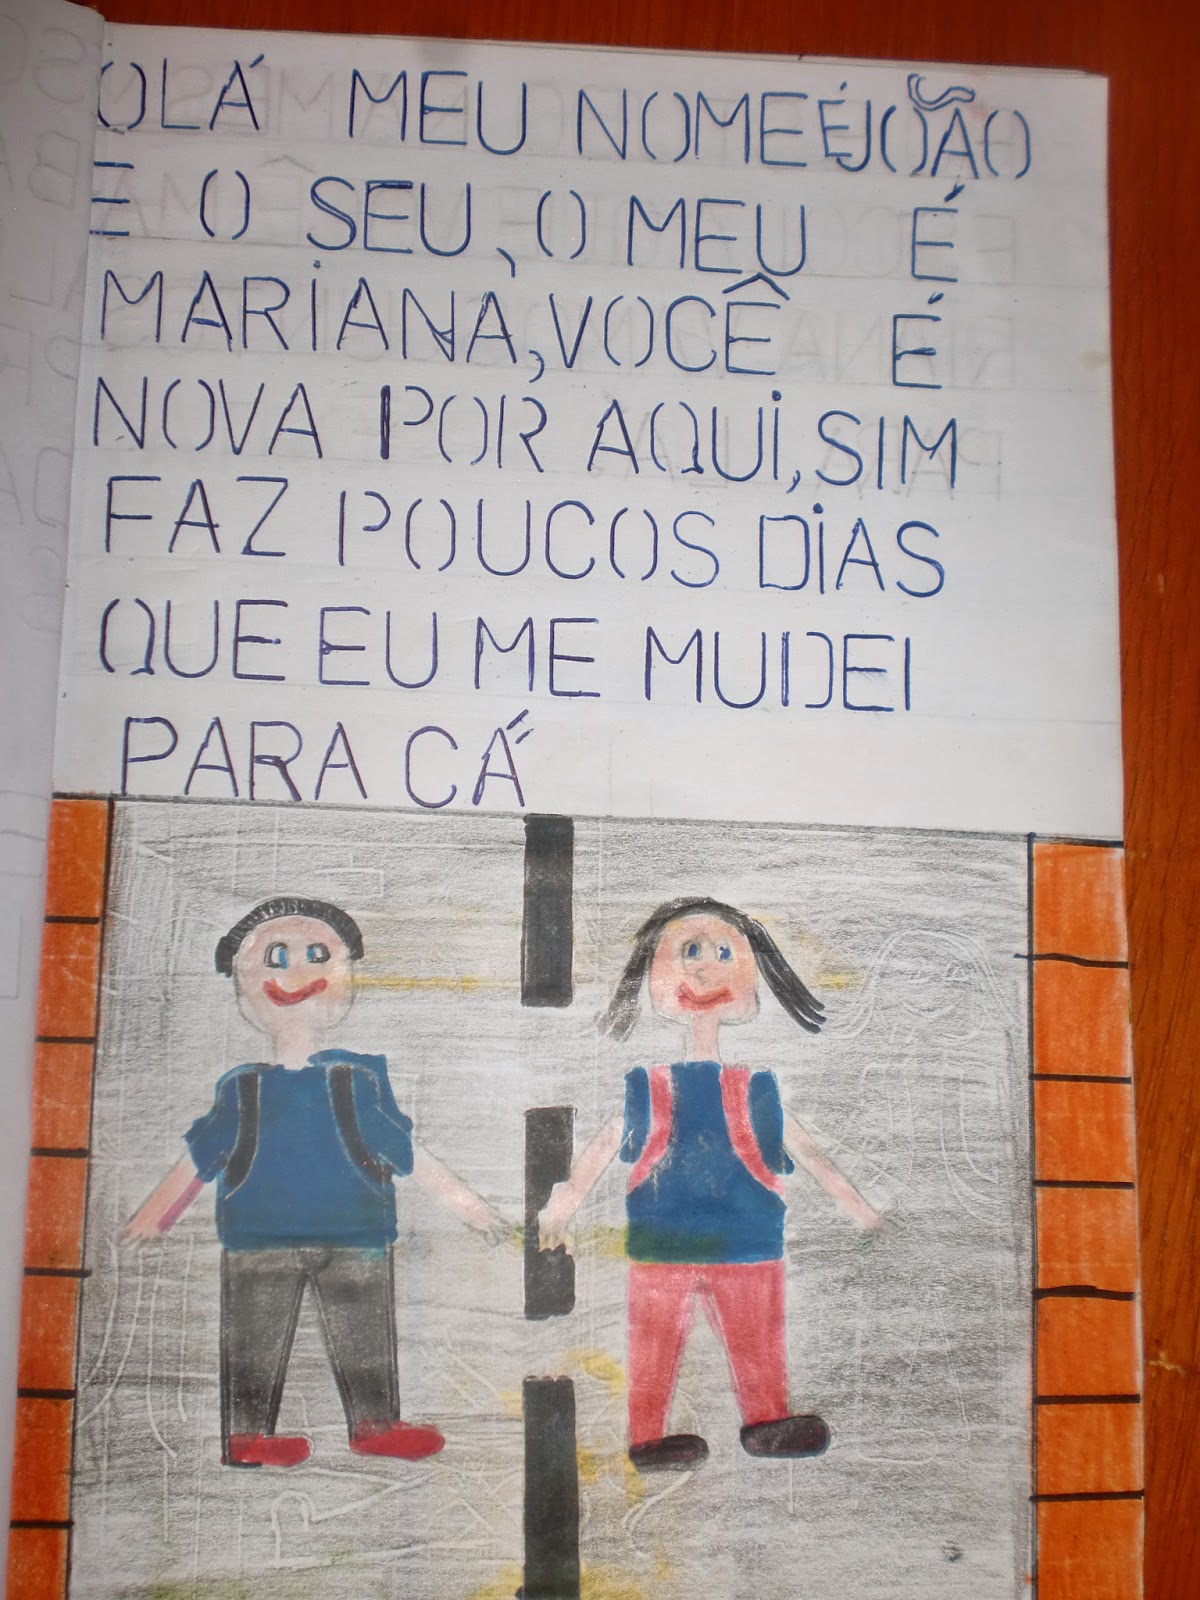 OLÁ MEU NOME É JOÃO
E O SEU, O MEU É
MARIANA, VOCÊ É
NOVA POR AQUI, SIM
FAZ POUCOS DIAS
QUE EU ME MUDEI
PARA CÁ